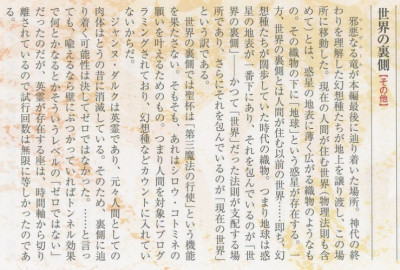 世界の裏側【その他】
　邪悪なる竜が本編最後に辿り着いた場所。神代の終
わりを理解した幻想種たちが地上を譲り渡し、この場
所に移動した。現在の人間が住む世界(物理法則も含
めて)とは、惑星の地表に薄く広がる織物のようなも
の。その織物の下に「地球」という惑星が存在する。一
方、世界の裏側とは人間が住む以前の世界――即ち、幻
想種たちが闊歩していた時代の織物。つまり地球は惑
星の地表が一番下にあり、それを包んでいるのが「世
界の裏側」――かつて〝世界〟だった法則が支配する場
所であり、さらにそれを包んでいるのが「現在の世界」
という訳である。
　世界の裏側では聖杯は「第三魔法の行使」という機能
を果たさない。そもそも、あれはシロウ・コトミネの
願いを叶えるためのもの。つまり人間を対象にプログ
ラミングされており、幻想種などカウントに入れてい
ないからだ。
　ジャンヌ・ダルクは英霊であり、元々人間としての
肉体はとうの昔に消滅している。そのため、裏側に辿
り着く可能性は決してゼロではなかった。……と言っ
ても、喩えるなら壁にぶつかっていればトンネル効果
で何とかなるとかそういうレベルの「ゼロではない」
だったのだが、英霊が存在する座は、時間軸から切り
離されているので試行回数は無限に等しかったのであ
る。